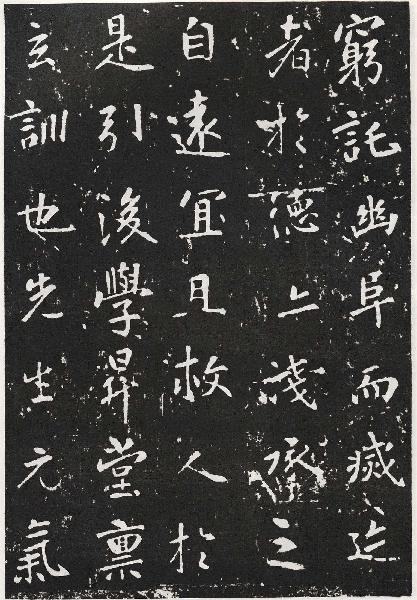 窮託幽阜而滅迹
者於德上淺承之
自遠宜且救人於
是引後學昇堂稟
玄訓也先生元氣